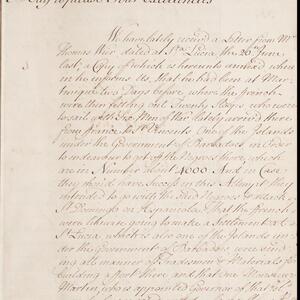 May it please Your Excellencies
We have lately received a Letter from Mr
Thomas Weir dated at Sta Lucia, the 26th June
last, a Copy of which is hereunto annexed where
in he informs Us, that he had been at Mar
tinique two Days before, where the french
were then fitting out Twenty Sloops who were
to sail with Two Men of War lately arrived there
from france to St Vincents One of the Islands
under the Government of Barbados in Order
to endeavour to get off the Negroes there, which
are in Number about 4000. And in Case
they should have Success in this Attempt they
intended to go with the said Negroes & attack
St Domingo on Hispaniola, That the french
were likewise going to make a Settlement at
St Lucia, which is also one of the Islands un
der the Government of Barbados, were send
ing all manner of Tradesmen & Materials for
building a fort there and that one Monsieur
Martin, who is appointed Governor of that